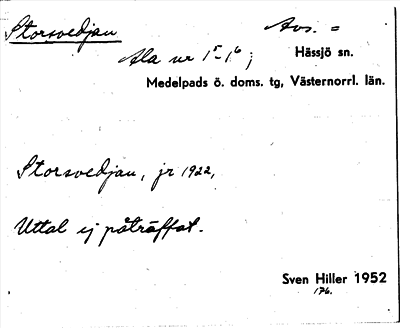 Storsvedjan Avs. =
Ala nr 1⁵, 1⁶; Hässjö sn.
Medelpads ö. doms. tg, Västernorrl. län.
Storsvedjan, jr 1922,
Uttal ej påträffat.
Sven Hiller 1952
176.